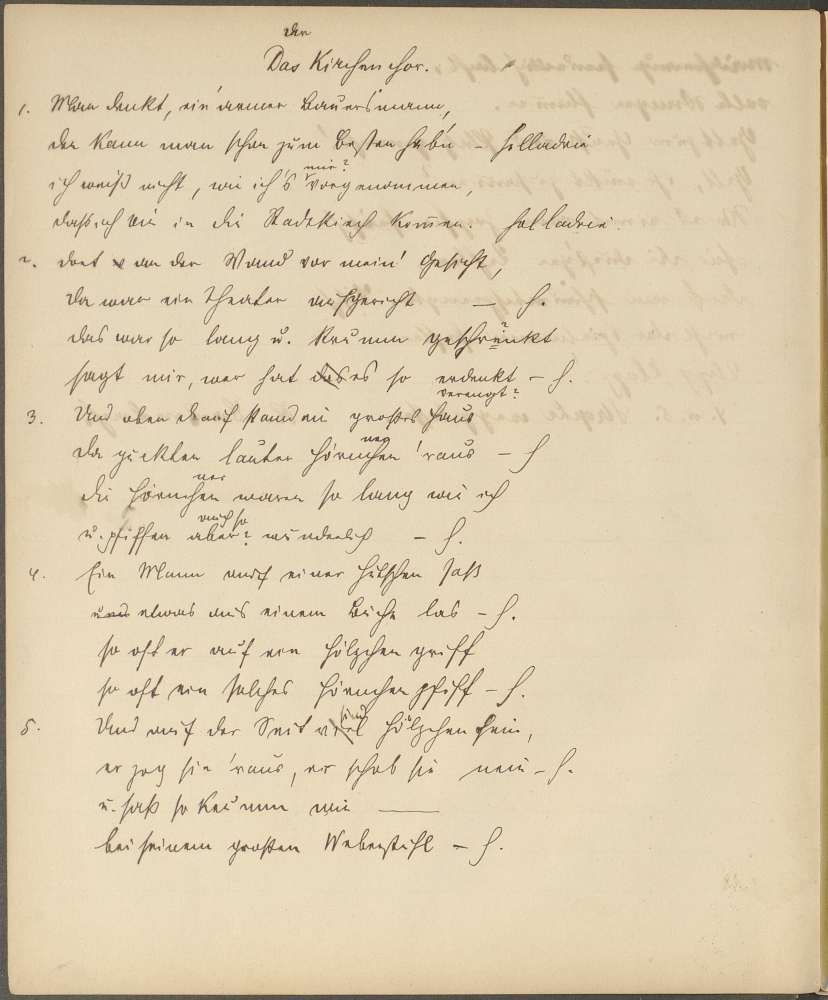 der
Das Kirchenchor.
1. Man denkt, ein armer Bauersmann,
den kann man schon zum Besten hab'n – Holladrie
mir?
ich weiß nicht, wie ich's vorgenommen,
daß ich bin in die Stadtkirch kommen. Holladrie.
2. dort an der Wand vor mein' Gesicht,
da war ein Theater aufgericht — H.
das war so lang u. krumm geschränkt
sagt mir, wer hat das es so erdenkt – H.
verengt?
3. Und oben drauf stand ein großes Haus
ner
da guckten lauter Hörnchen 'raus – H
ner
die Hörnchen waren so lang wie ich
auch so
u. pfiffen aber? wunderlich – H.
4. Ein Mann auf einer Hütschen saß
und etwas aus einem Buche las – H.
so oft er auf ein Hölzchen griff
so oft ein solches Hörnchen pfiff – H.
sind
5. Und auf der Seit viel Hölzchen fein,
er zog sie 'raus, er schob sie nein – H.
u. saß so krumm wie ———
bei seinem großen Weberstuhl – H.